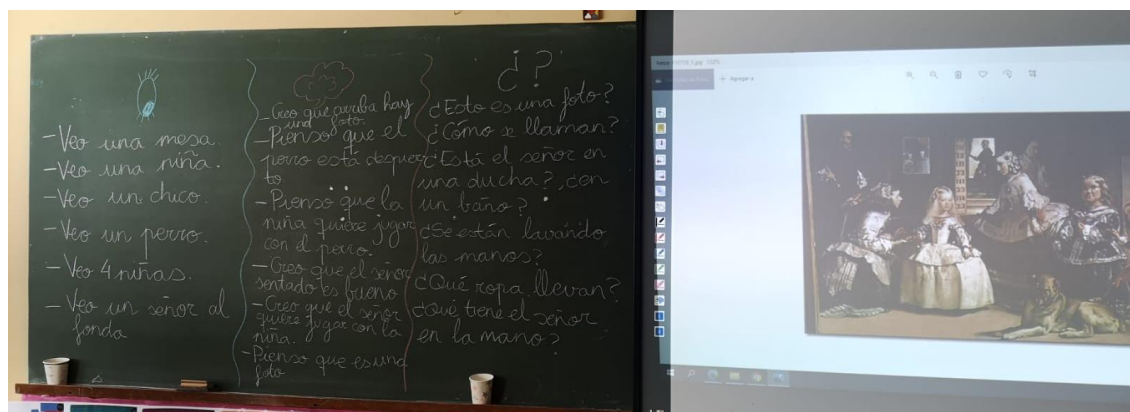 - Veo una mesa.
- Veo una niña.
- Veo un chico.
- Veo un perro.
- Veo 4 niñas.
- Veo un señor al
fonda
- Creo que arriba hay
una foto.
- Pienso que el
perro está despier
to
- Pienso que la
niña quiere jugar
con el perro.
- Creo que el señor
sentado es bueno
- Creo que el señor
quiere jugar con la
niña.
- Pienso que es una
foto
¿?
¿Esto es una foto?
¿Cómo se llaman?
¿Está el señor en
una ducha?, ¿en
un baño?
¿Se están lavando
las manos?
¿Qué ropa llevan?
¿Qué tiene el señor
en la mano?
+ Agregar a